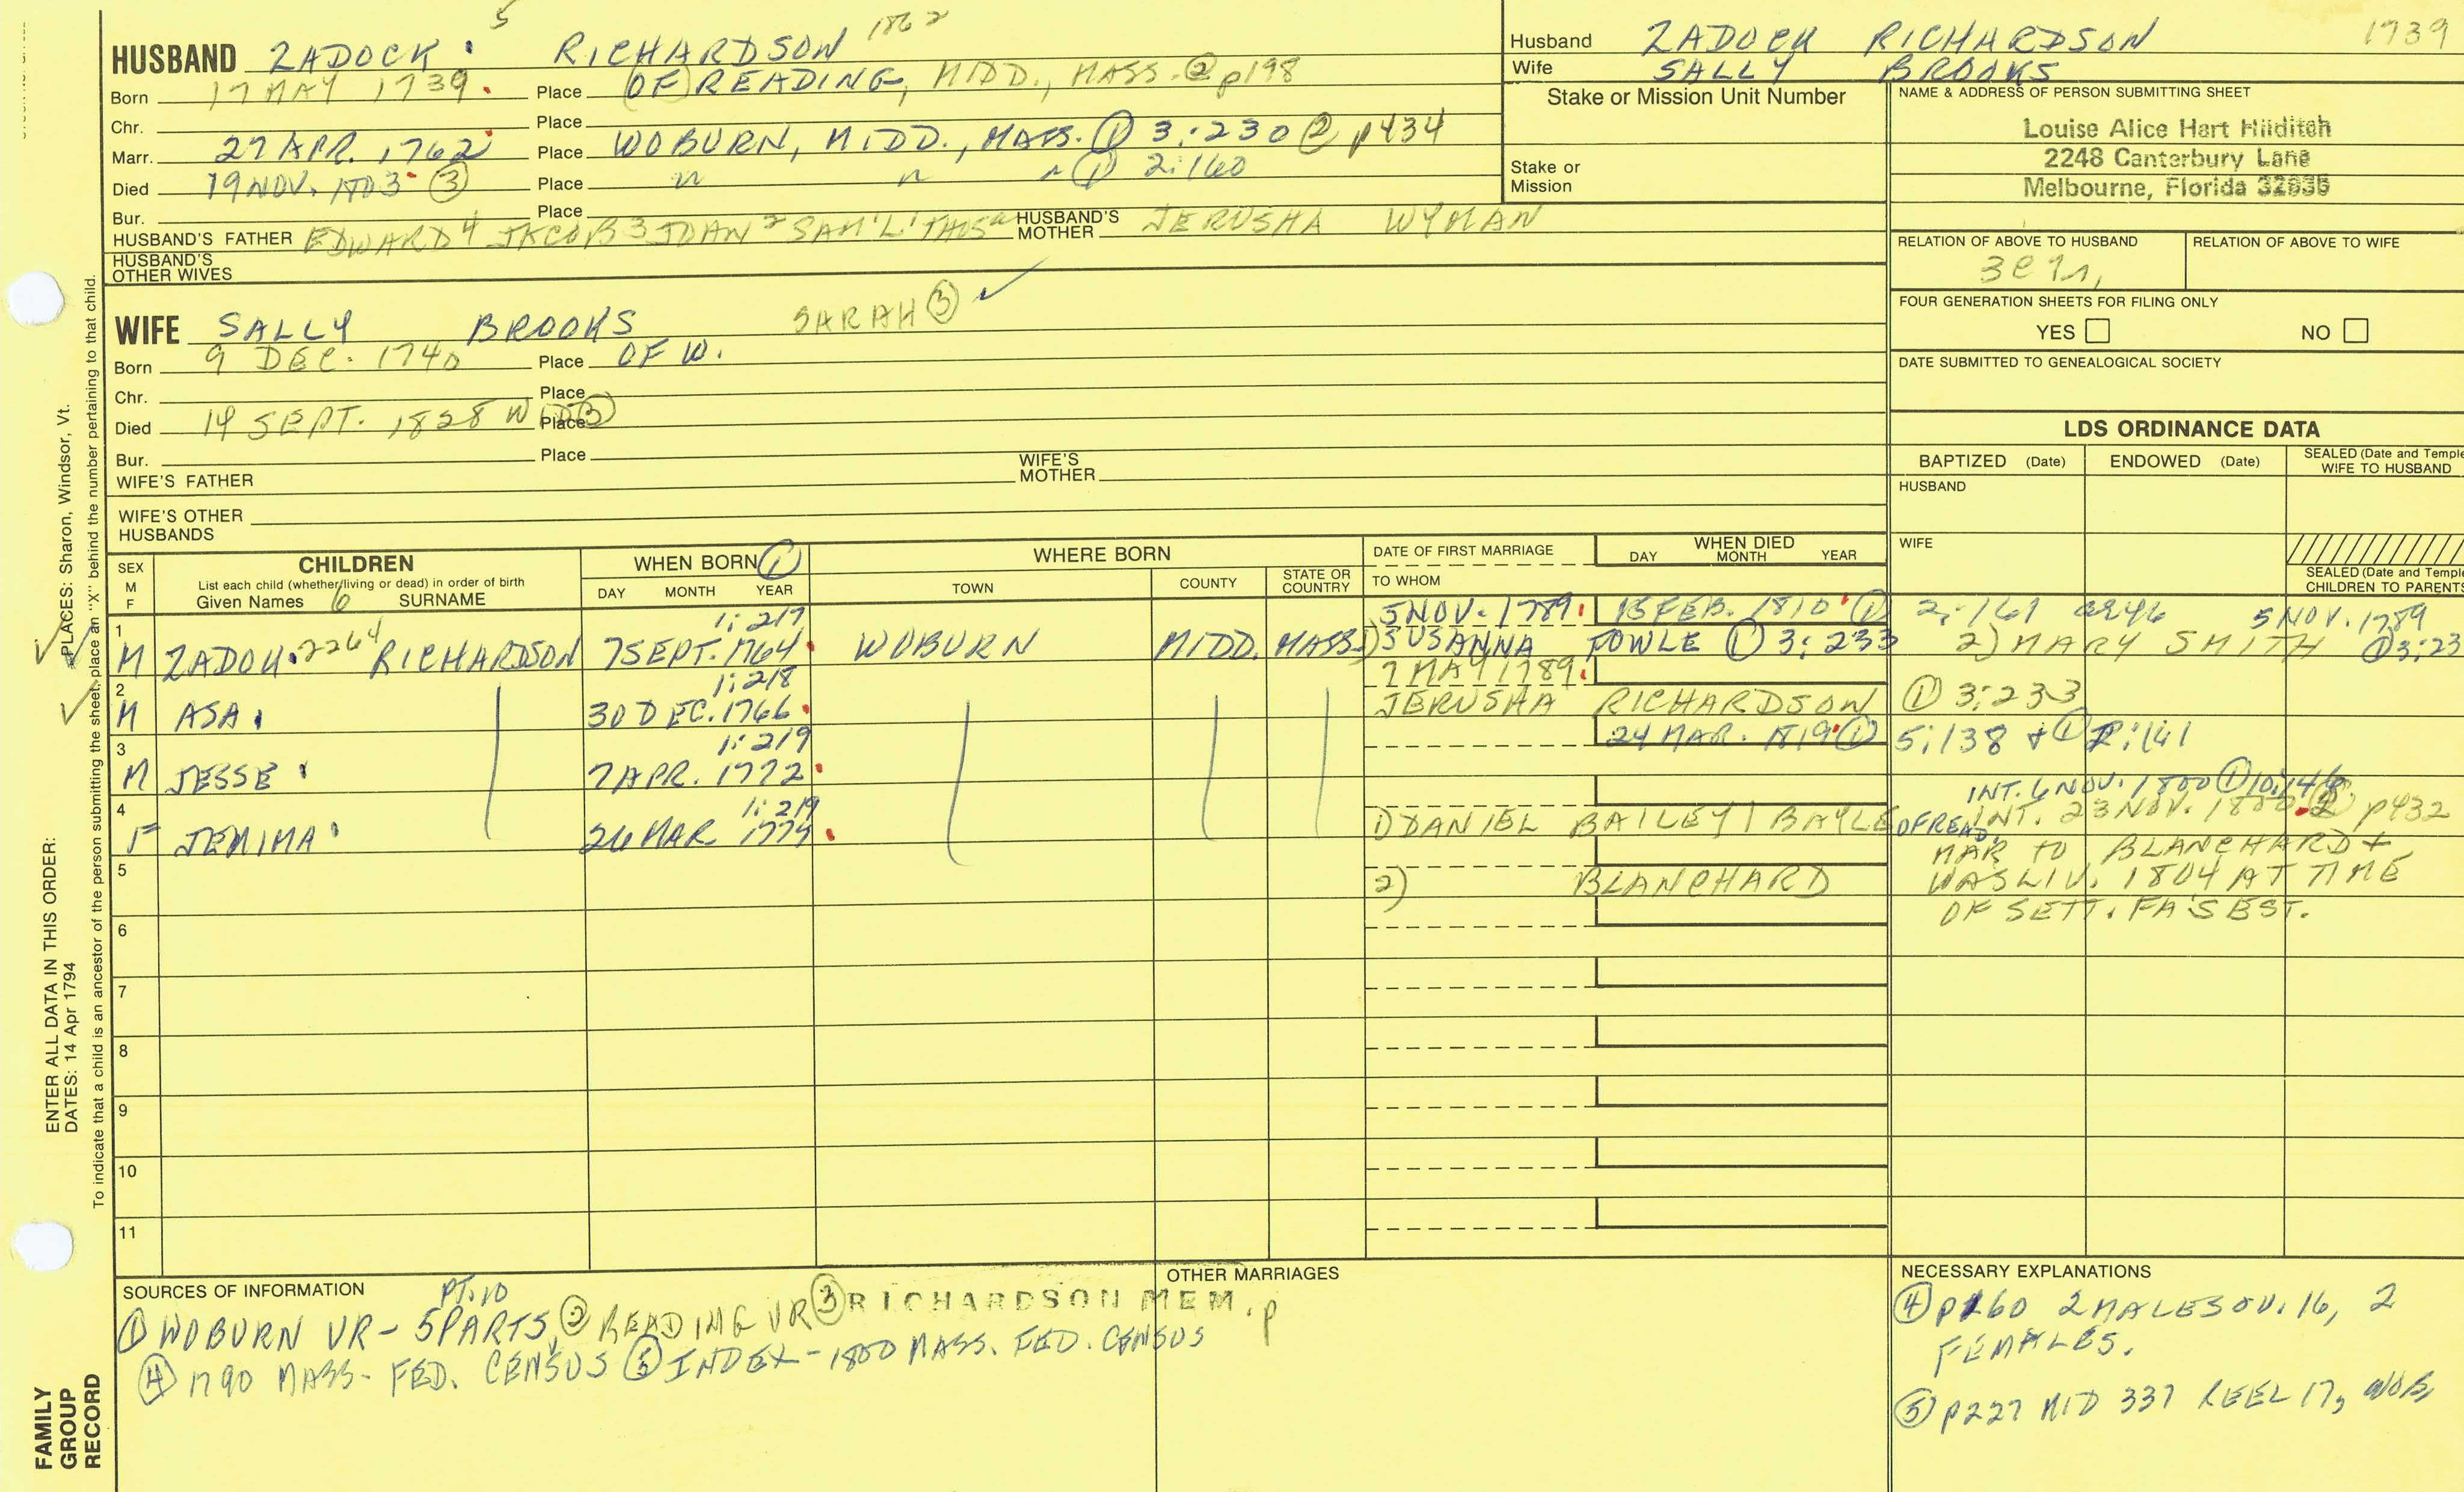 5
1862
HUSBAND ZADOCK RICHARDSON
Born 17 MAY 1739. Place (OF) READING, MIDD., MASS. ② p198
Chr. Place
Marr. 27 APR. 1762 Place WOBURN, MIDD., MASS. ① 3:230 ② p434
Died 19 NOV. 1803 ③ Place " " " ① 2:160
Bur. Place
HUSBAND'S FATHER EDWARD 4 JACOB 3 2 SAM'L' HUSBAND'S MOTHER JERUSHA WYMAN
HUSBAND'S OTHER WIVES
WIFE SALLY BROOKS SARAH ③ ✓
Born 9 DEC. 1740 Place OF W.
Chr. Place
Died 14 SEPT. 1828 ③ Place
Bur. Place
WIFE'S FATHER WIFE'S MOTHER
WIFE'S OTHER HUSBANDS
Husband ZADOCK RICHARDSON 1739
Wife SALLY BROOKS
Stake or Mission Unit Number
Stake or Mission
NAME & ADDRESS OF PERSON SUBMITTING SHEET
Louise Alice Hart Hilditch
2248 Canterbury Lane
Melbourne, Florida 32935
RELATION OF ABOVE TO HUSBAND RELATION OF ABOVE TO WIFE
FOUR GENERATION SHEETS FOR FILING ONLY
YES NO
DATE SUBMITTED TO GENEALOGICAL SOCIETY
LDS ORDINANCE DATA
BAPTIZED (Date) ENDOWED (Date) SEALED (Date and Temple
WIFE TO HUSBAND
HUSBAND
WIFE
SEALED (Date and Temple
CHILDREN TO PARENTS
SEX
M
F
CHILDREN
List each child (whether living or dead) in order of birth
Given Names 6 SURNAME
WHEN BORN ①
DAY MONTH YEAR
WHERE BORN
TOWN COUNTY STATE OR COUNTRY
DATE OF FIRST MARRIAGE
TO WHOM
WHEN DIED
DAY MONTH YEAR
1:217 5 NOV. 1789. 15 FEB. 1810 ① 2:161 5 NOV. 1789
1 M ZADOK. 2264 RICHARDSON 7 SEPT. 1764 WOBURN MIDD. MASS. 1) SUSANNA FOWLE ① 3:233 2) MARY SMITH ① 3:23
1:218 7 MAY 1789.
2 M ASA 30 DEC. 1766 JERUSHA RICHARDSON ① 3:233
1:219 24 MAR. 1819 ① 5:138 + ① 2:141
3 M JESSE 7 APR. 1772
INT. 6 NOV. 1800 ① 10:146
1:219
4 F JEMIMA 26 MAR 1779 1) DANIEL BAILEY | BAYLE OF READ. INT. 23 NOV. 1800. ② p432
MAR TO BLANCHARD +
5 2) BLANCHARD WAS LIV. 1804 AT TIME
OF SETT. FA'S EST.
6
7
8
9
10
11
SOURCES OF INFORMATION
PT. 10
① WOBURN VR - 5 PARTS, ② READING VR ③ RICHARDSON MEM. p
④ 1790 MASS. FED. CENSUS ⑤ INDEX - 1800 MASS. FED. CENSUS
OTHER MARRIAGES
NECESSARY EXPLANATIONS
④ 2 MALES OV. 16, 2
FEMALES.
⑤ p227 MID 337 REEL 17, WOB,
ENTER ALL DATA IN THIS ORDER:
DATES: 14 Apr 1794
PLACES: Sharon, Windsor, Vt.
To indicate that a child is an ancestor of the person submitting the sheet, place an "X" behind the number pertaining to that child.
FAMILY
GROUP
RECORD